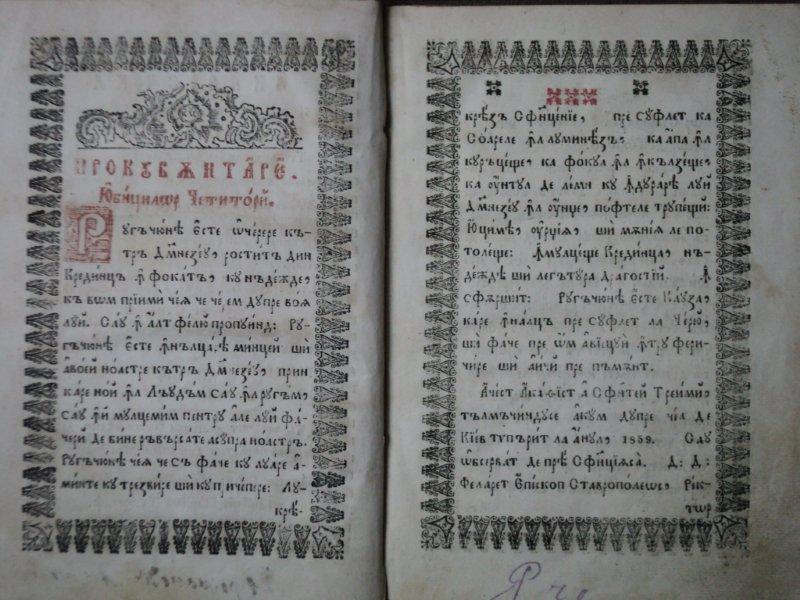 ПРОКУВѪНТАРЕ.
Юбицилѡр Четитори.
Ругъчюне єсте ѡ черере къ-
тръ Дмнезеу ростит дин
Крединцъ ꙟфокатъ, ку нъдежде,
къ вѡм приими чѣя че чѣем дупре воѧ
луй. Сау ꙟ алт фелю пропуинд: Ру-
гъчюне єсте ꙟнълцарѣ минцей ши
а воей ноастре кътръ Дмнезеу, прин
каре ной ꙟл лъудъм сау ꙟл ругъм,
сау ꙟй мулцемим пентру але луй фа-
чери де бине ръвърсате асупра ноастръ.
Ругъчюне чѣя че съ фаче ку луаре а-
минте ку трезвире ши ку причѣпере: Лу-
крѣ-
крѣзъ Сфинцение, пре суфлет ка
Соареле ꙟл луминѣзъ, ка апа ꙟл
куръцеще, ка фокул ꙟл ꙟкълзеще,
ка унтул де лемн ку ꙟдураре луй
Дмнезеу ꙟл унце, пофтеле трупещи:
Юцимѣ, урція ши мѫнія ле по-
толеще: ꙟмулцеще Крединца, нъ-
деждѣ ши легътура драгостій. ꙟ
сфѫршит: Ругъчюне єсте Каѵза,
каре ꙟналцъ пре суфлет ла Черю,
ши фаче пре ѡм а виецуй ꙟтру фери-
чире ши аичй пре пъмѫнт.
Ачест Акаѳист а Сфинтей Треими,
тълмъчиндусе акум дупре чел де
Кіев типърит ла Анул 1839. Сау
ѡбсерват де Прѣ Сфинціяса. Д: Д:
Феларет Єпископ Ставрополеѡс, Рек-
тѡр